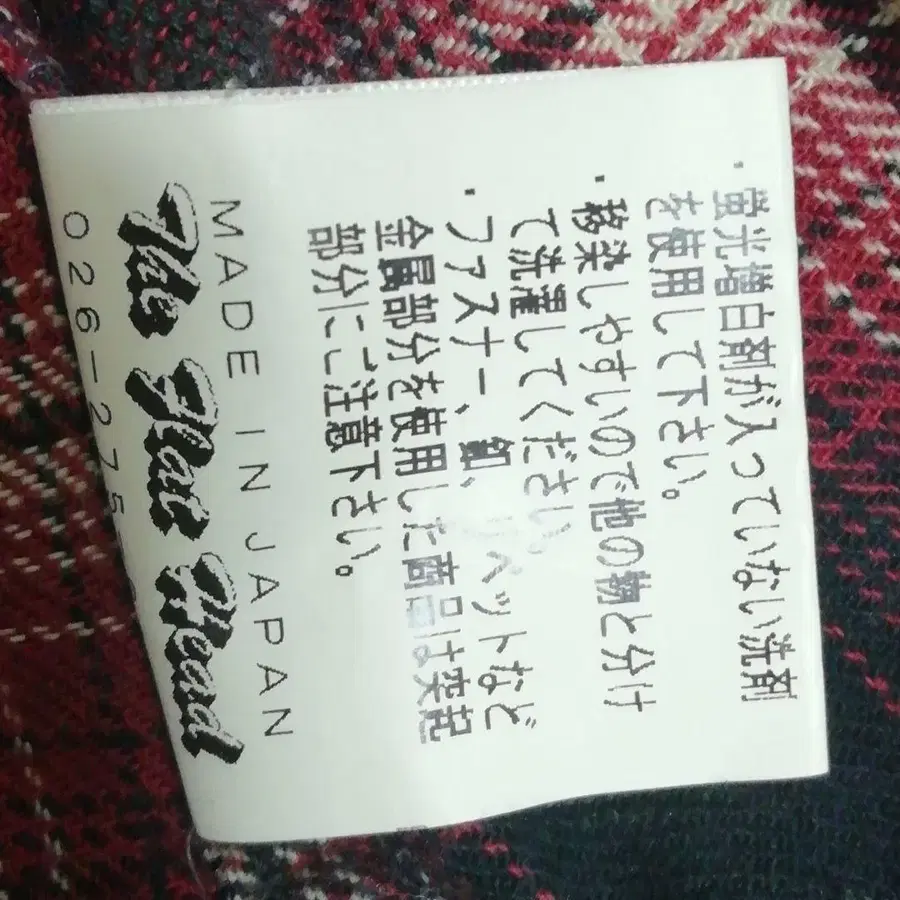 ・蛍光増白剤が入っていない洗剤
を使用して下さい。
・移染しやすいので他の物と分け
て洗濯してください。
・ファスナー、釦、リベットなど
金属部分を使用した商品は突起
部分にご注意下さい。
MADE IN JAPAN
The Flat Head
026-275